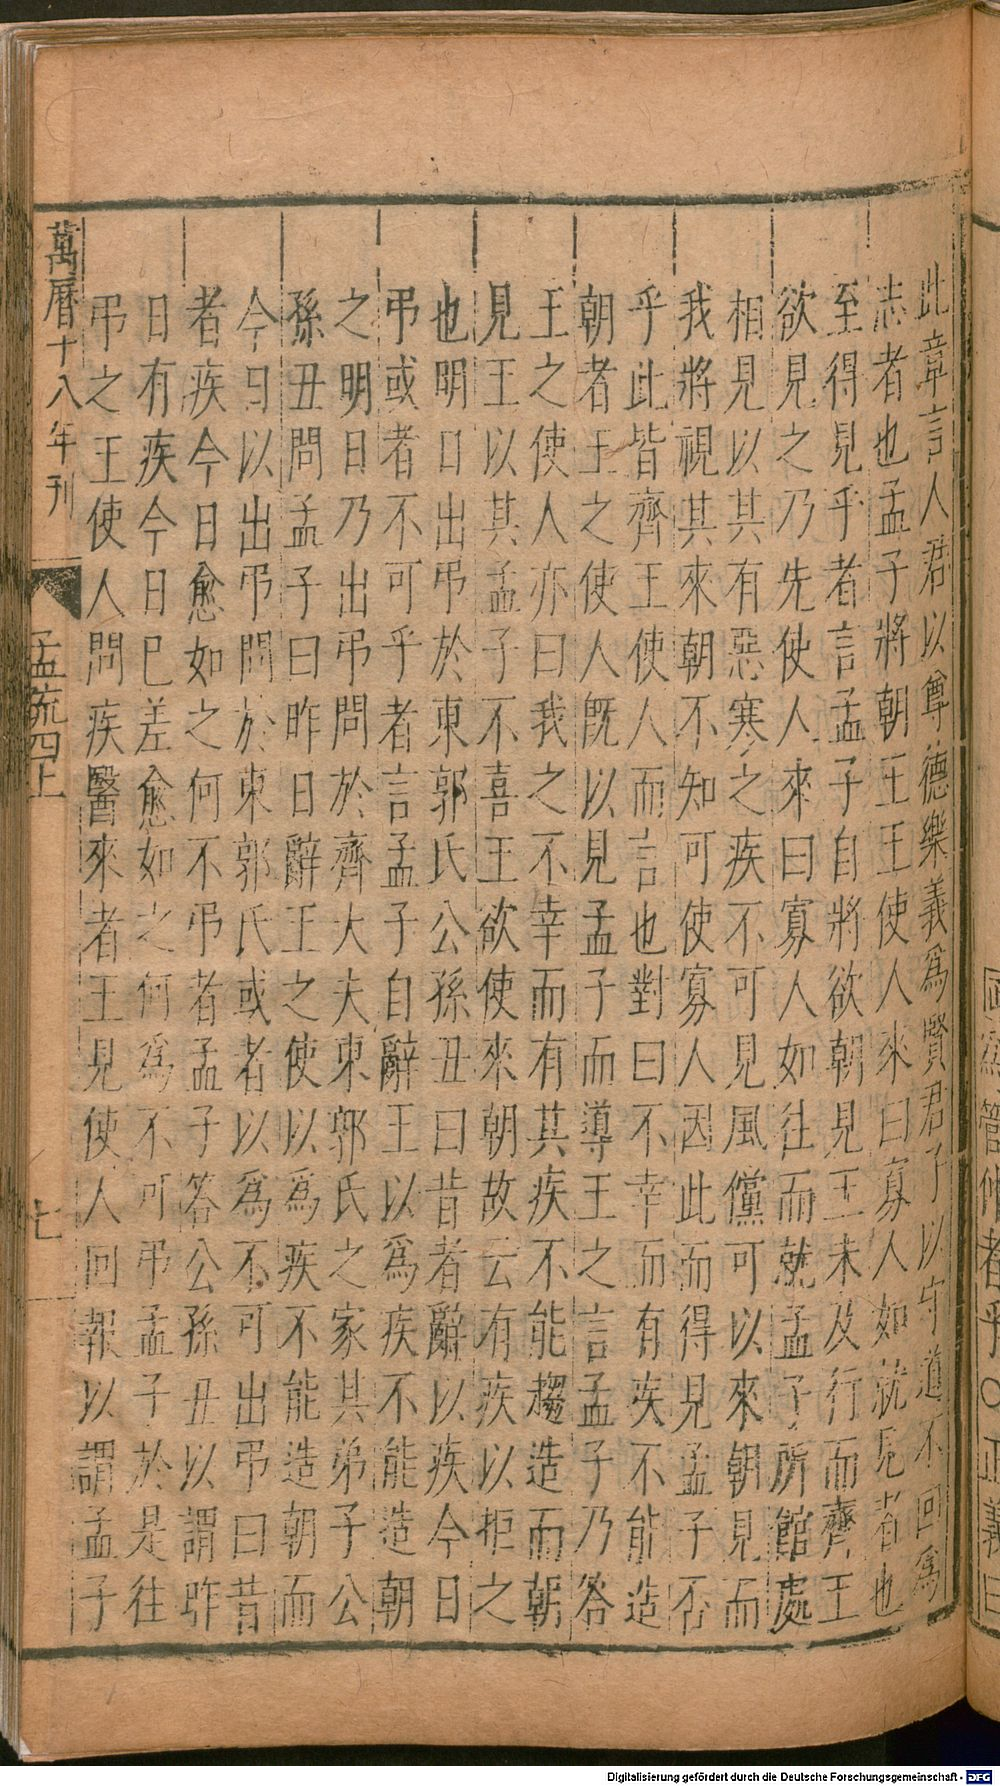 此章言人君以尊德樂義爲賢君子以守道不回爲
志者也孟子將朝王王使人來曰寡人如就見者也
至得見乎者言孟子自將欲朝見王未及行而齊王
欲見之乃先使人來曰寡人如往而就孟子所館處
相見以其有惡寒之疾不可見風儻可以來朝見而
我將視其來朝不知可使寡人因此而得見孟子否
乎此皆齊王使人而言也對曰不幸而有疾不能造
朝者王之使人既以見孟子而導王之言孟子乃答
王之使人亦曰我之不幸而有其疾不能趨造而朝
見王以其孟子不喜王欲使來朝故云有疾以拒之
也明日出弔於東郭氏公孫丑曰昔者辭以疾今日
弔或者不可乎者言孟子自辭王以爲疾不能造朝
之明日乃出弔問於齊大夫東郭氏之家其弟子公
孫丑問孟子曰昨日辭王之使以爲疾不能造朝而
今日以出弔問於東郭氏或者以爲不可出弔曰昔
者疾今日愈如之何不弔者孟子答公孫丑以謂昨
日有疾今日已差愈如之何爲不可弔孟子於是往
弔之王使人問疾醫來者王見使人回報以謂孟子
萬曆十八年刊
孟䟽四上
七
者乎○正義曰
Digitalisierung gefördert durch die Deutsche Forschungsgemeinschaft - DFG